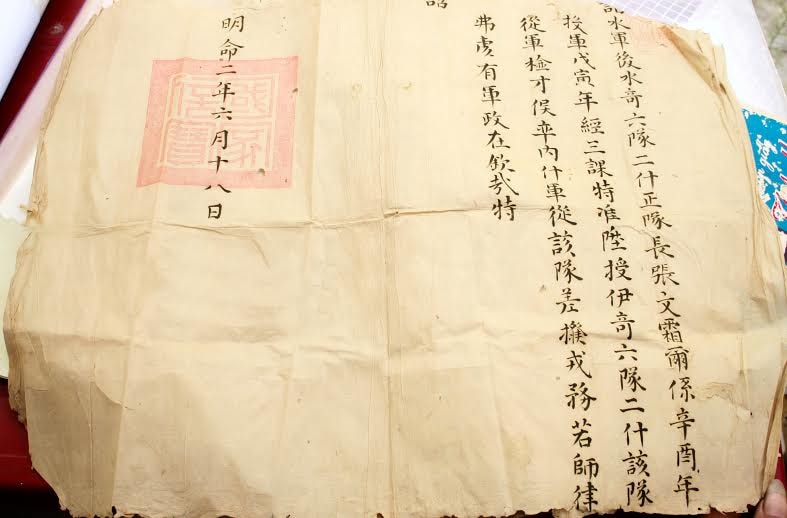 水軍後水奇六隊二什正隊長張文霜爾係辛酉年
投軍戊寅年經三課特准陞授伊奇六隊二什該隊
從軍檢才俟率內什軍從該隊差撥戎務若師律
弗虔有軍政在欽哉特
明命二年六月十八日
國家信寶